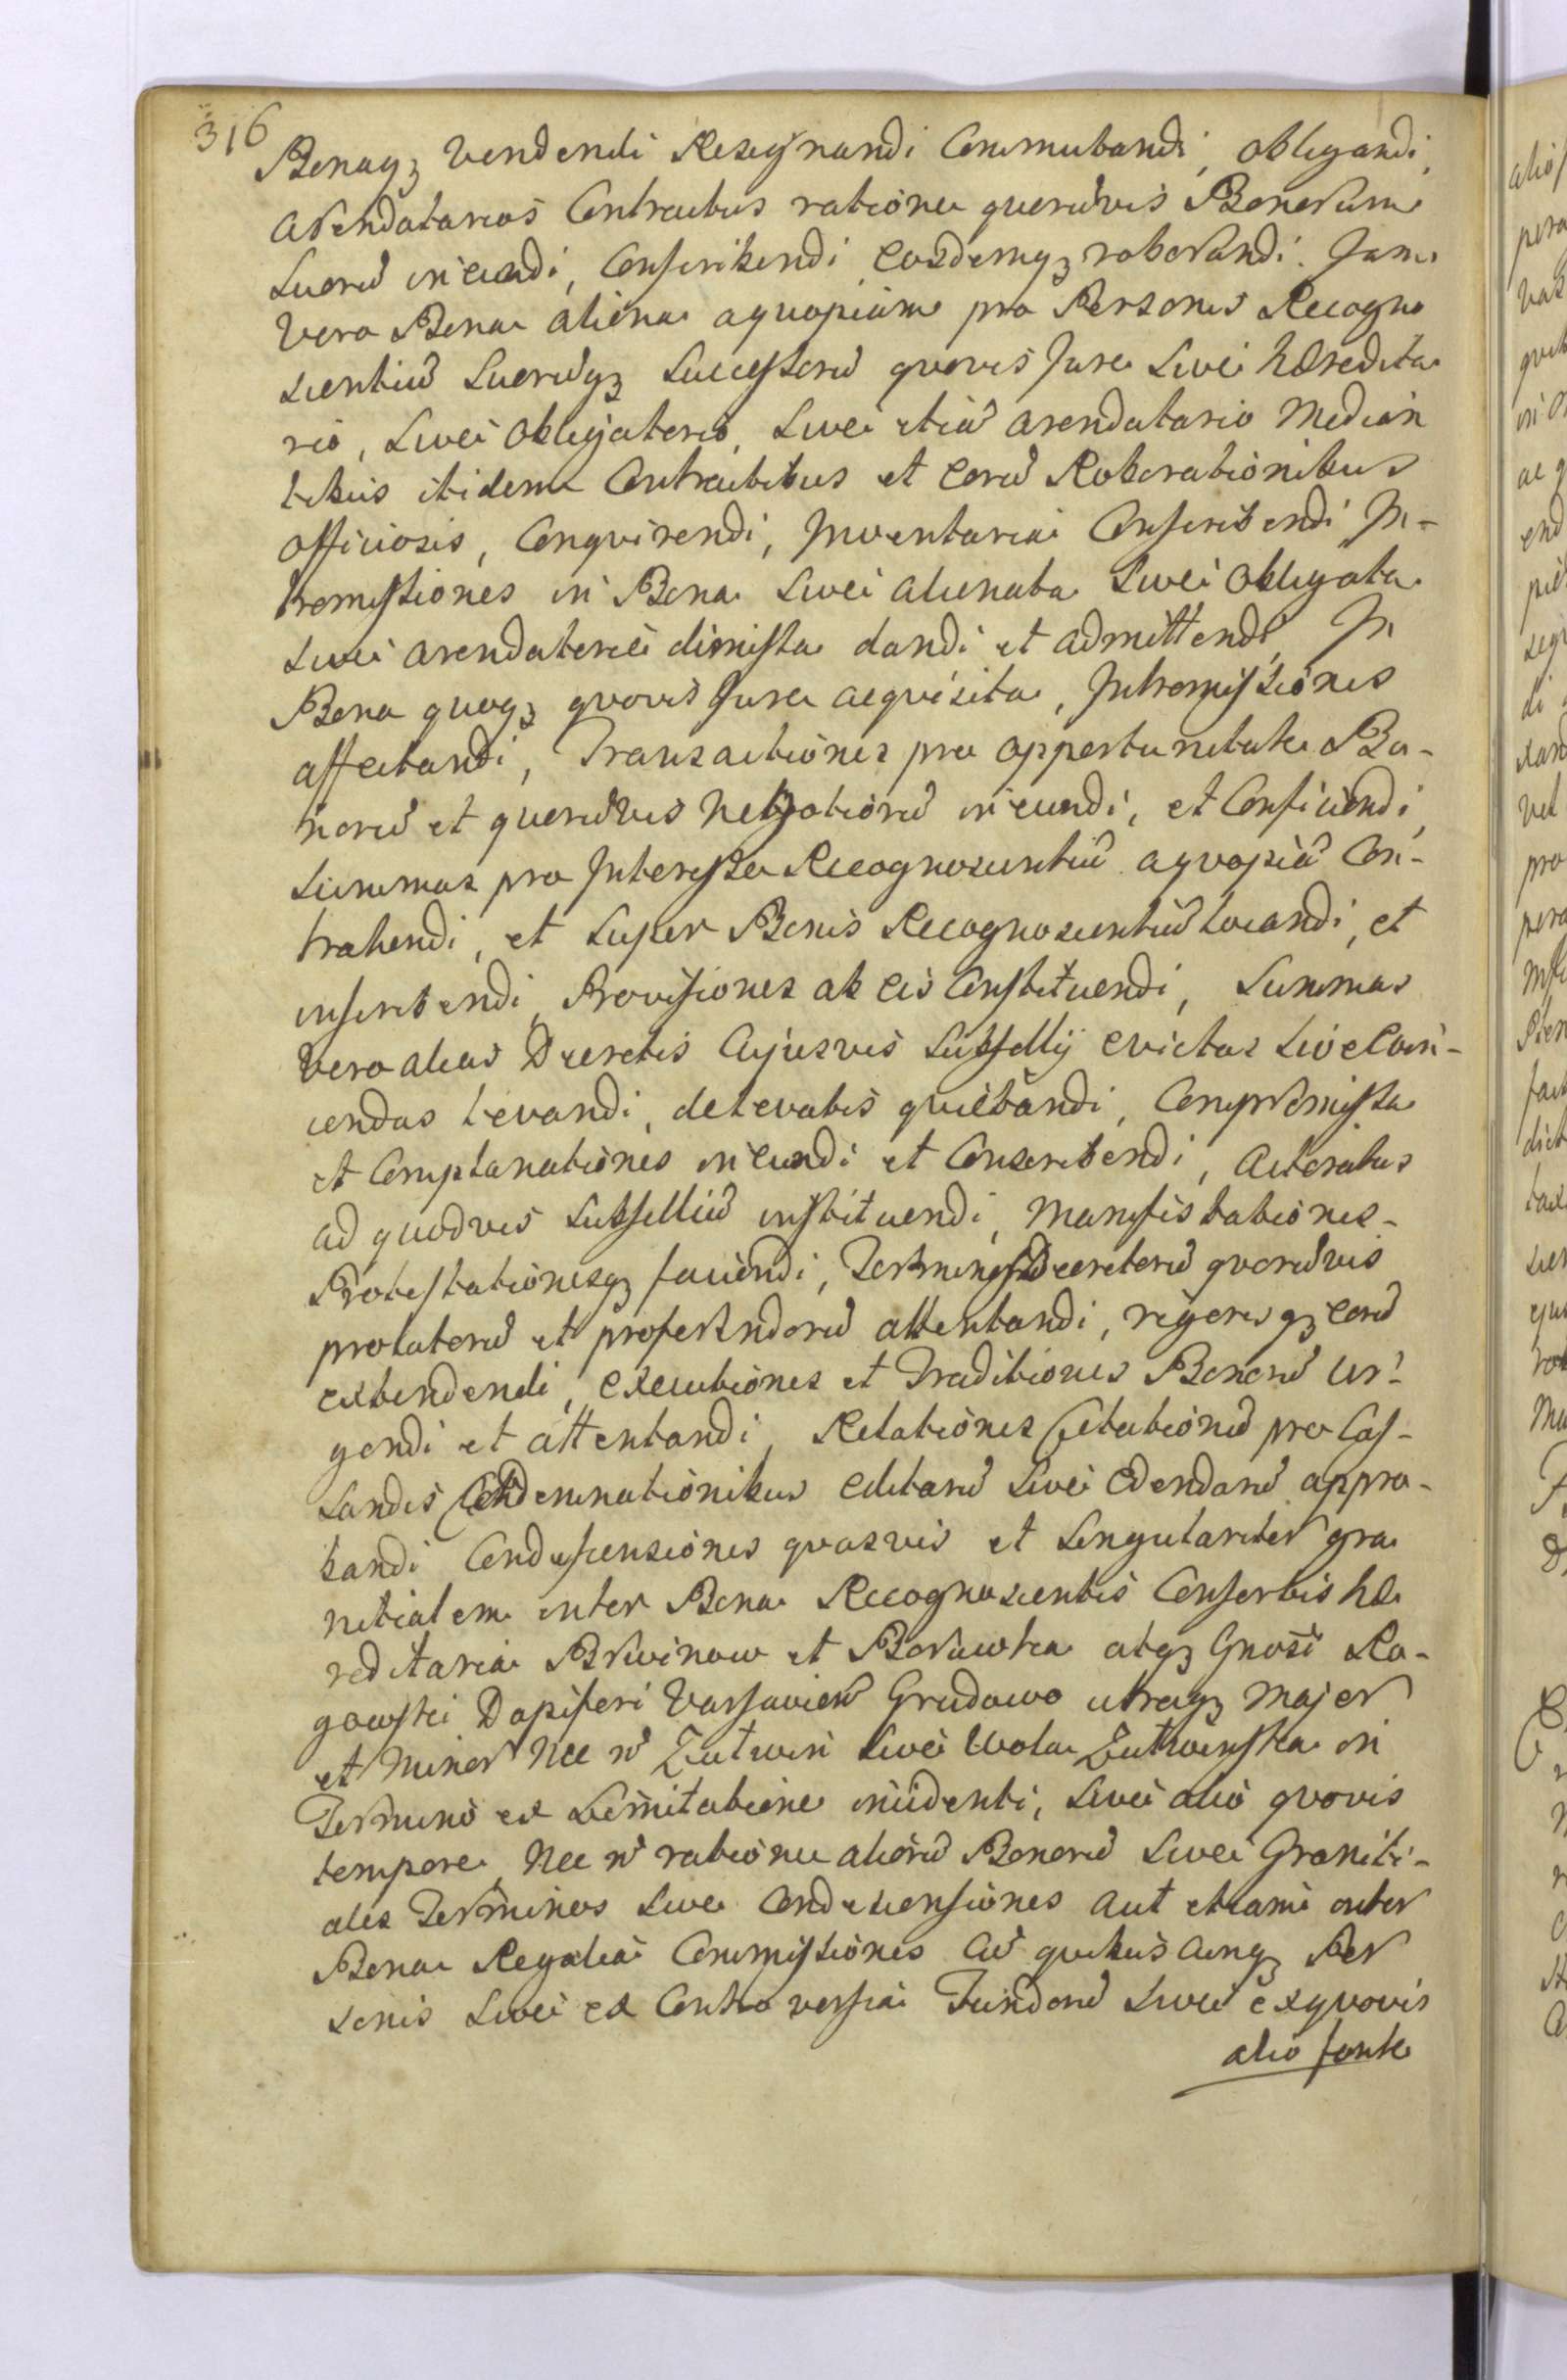 316
Bonaqꝫ vendendi Resignandi Commutandi, obligandi,
Arendatarios Contractus ratione quorūvis Bonorum
Suorū ineundi, Conscribendi eosdemqꝫ roborandi. Jam
vero Bona aliena aquopiam pro Personis Recogno
scentiū Suorūqꝫ Successorū quovis Jure Sive hæredita
rio, Sive obligatorio, Sive etiā arendatario Median
tibus itidem Contractibus et eorū Roborationibus
officiosis, Conquirendi, Inventaria Conscribendi In-
tromissiones in Bona Sive alienata Sive obligata
Sive arendatorie dimissa dandi et admittendi, In
Bona quoqꝫ quovis Jure acquisita, Intromissiones
affectandi, Transactiones pro opportunitate Bo-
norū et quorūvis Negotiorū ineundi, et Conficiendi,
Summas pro Interesse Recognoscentiū aquopiā Con-
trahendi, et Super Bonis Recognoscentiū locandi, et
inscribendi, Provisiones ab eis Constituendi, Summas
vero alias Decretis Cujusvis Subsellij evictas Sive evin-
cendas levandi, de levatis quietandi, Compromissa
et Complanationes ineundi et Conscribendi, Actoratus
ad quodvis Subselliū instituendi, Manifestationes-
Protestationesqꝫ faciendi, Terminos Decretorū quorūvis
prolatorū et proferendorū attentandi, rigoresqꝫ eorū
extendendi, Executiones et Traditiones Bonorū Ur-
gendi et attentandi, Relationes Citationū pro Cas-
sandis Condemnationibus editarū Sive edendarū appro-
bandi Condescensiones quasvis et Singulariter gra
nitialem inter Bona Recognoscentis Consortis hæ
reditaria Brwinow et Borowka atqꝫ Gnosi Ro-
gowski Dapiferi Varsavien Grudowo utraqꝫ Major
et Minor Nec n̄ Zutwin Sive Wola Zutwinska in
Termino ex Limitatione incidenti, Sive alio quovis
tempore, Nec n̄ ratione aliorū Bonorū Sive Graniti-
ales Terminos Sive Condescensiones aut etiam inter
Bona Regalia Commissiones Cū quibus Cunqꝫ Per
sonis Sive ex Controversia Fundorū Sive exquovis
alio fonte